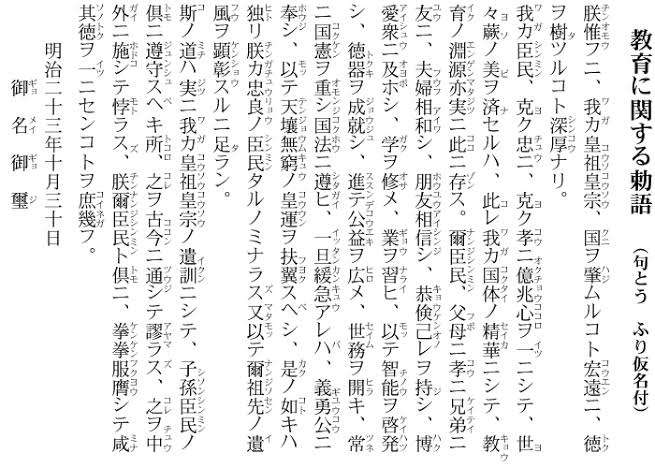 教育に関する勅語 （句とう ふり仮名付）
朕惟フニ、我カ皇祖皇宗、国ヲ肇ムルコト宏遠ニ、徳
ヲ樹ツルコト深厚ナリ。
我カ臣民、克ク忠ニ、克ク孝ニ億兆心ヲ一ニシテ、世
々厥ノ美ヲ済セルハ、此レ我カ国体ノ精華ニシテ、教
育ノ淵源亦実ニ此ニ存ス。爾臣民、父母ニ孝ニ兄弟ニ
友ニ、夫婦相和シ、朋友相信シ、恭倹己レヲ持シ、博
愛衆ニ及ホシ、学ヲ修メ、業ヲ習ヒ、以テ智能ヲ啓発
シ、徳器ヲ成就シ、進テ公益ヲ広メ、世務ヲ開キ、常
ニ国憲ヲ重シ国法ニ遵ヒ、一旦緩急アレハ、義勇公ニ
奉シ、以テ天壌無窮ノ皇運ヲ扶翼スヘシ、是ノ如キハ
独リ朕カ忠良ノ臣民タルノミナラス又以テ爾祖先ノ遺
風ヲ顕彰スルニ足ラン。
斯ノ道ハ実ニ我カ皇祖皇宗ノ遺訓ニシテ、子孫臣民ノ
倶ニ遵守スヘキ所、之ヲ古今ニ通シテ謬ラス、之ヲ中
外ニ施シテ悖ラス、朕爾臣民ト倶ニ、拳拳服膺シテ咸
其徳ヲ一ニセンコトヲ庶幾フ。
明治二十三年十月三十日
御名御璽